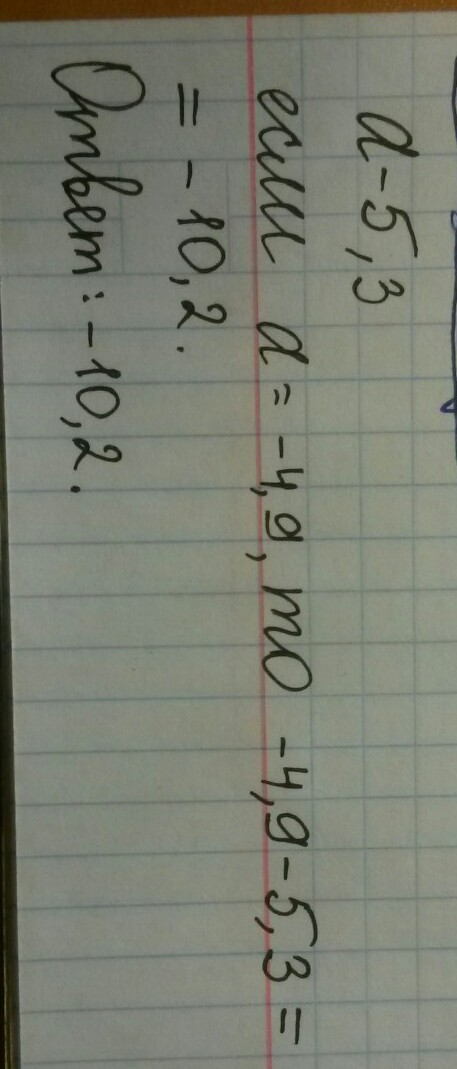 d-5,3
если d=-4,9, то -4,9-5,3=
=-10,2.
Ответ:-10,2.